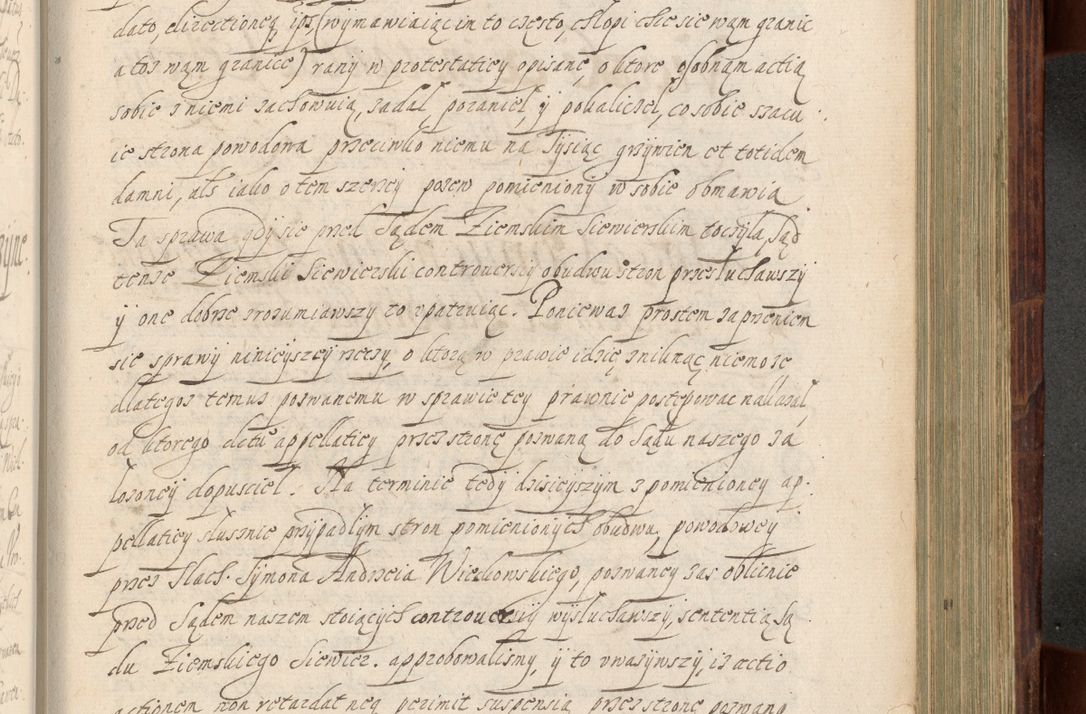 dato, directioneq ipsą wymawiaiąc im to często, chłopi chcie sie wąm granic
a toż wąm granice) rany w protestaticy opisane, o ktore osobnam actią
sobie z niemi zachowuią, zadał, poranieł, y pokaliczeł, co sobie szacu
ie strona powodowa przeciwko niemu na Tysiąc grzywien et totidem
damni, als iako o tem szerzey pozew pomieniony w sobie obmawia
Ta sprawa gdy sie przed Sądem Ziemskim Siewierskim toczyła, Sąd
tense Ziemski Siewierski controuersiy obudwu stron przesłuchawszy
y one dobrze zrozumiawszy to vpatruiąc. Poniewaz prostem zaprzeniem
sie sprawy ninieyszey rzeczy, o ktorą w prawie idzie zniknąc niemoze
dlategoz temus pozwanemu w sprawie tey prawnie postępowac nakazał,
od ktorego detu appellaticy przez stronę pozwaną do Sądu naszego za
łozoney dopusciel. Na terminie tedy dzisieyszym z pomienioney ap:
pellaticy słusznie przypadłym stron pomienionych obudwu, powodowey
przez Slach. Symona Andrzeia Wieckowskiego, pozwaney zas oblicnie
przed Sądem naszem stoiących controuersiy wysłuchawszy, sententią Są
du Ziemskiego Siewier. approbowalismy, y to vwazywszy, iz actio
actionem non retardat neq perimit suspensia przez stronę pozwaną